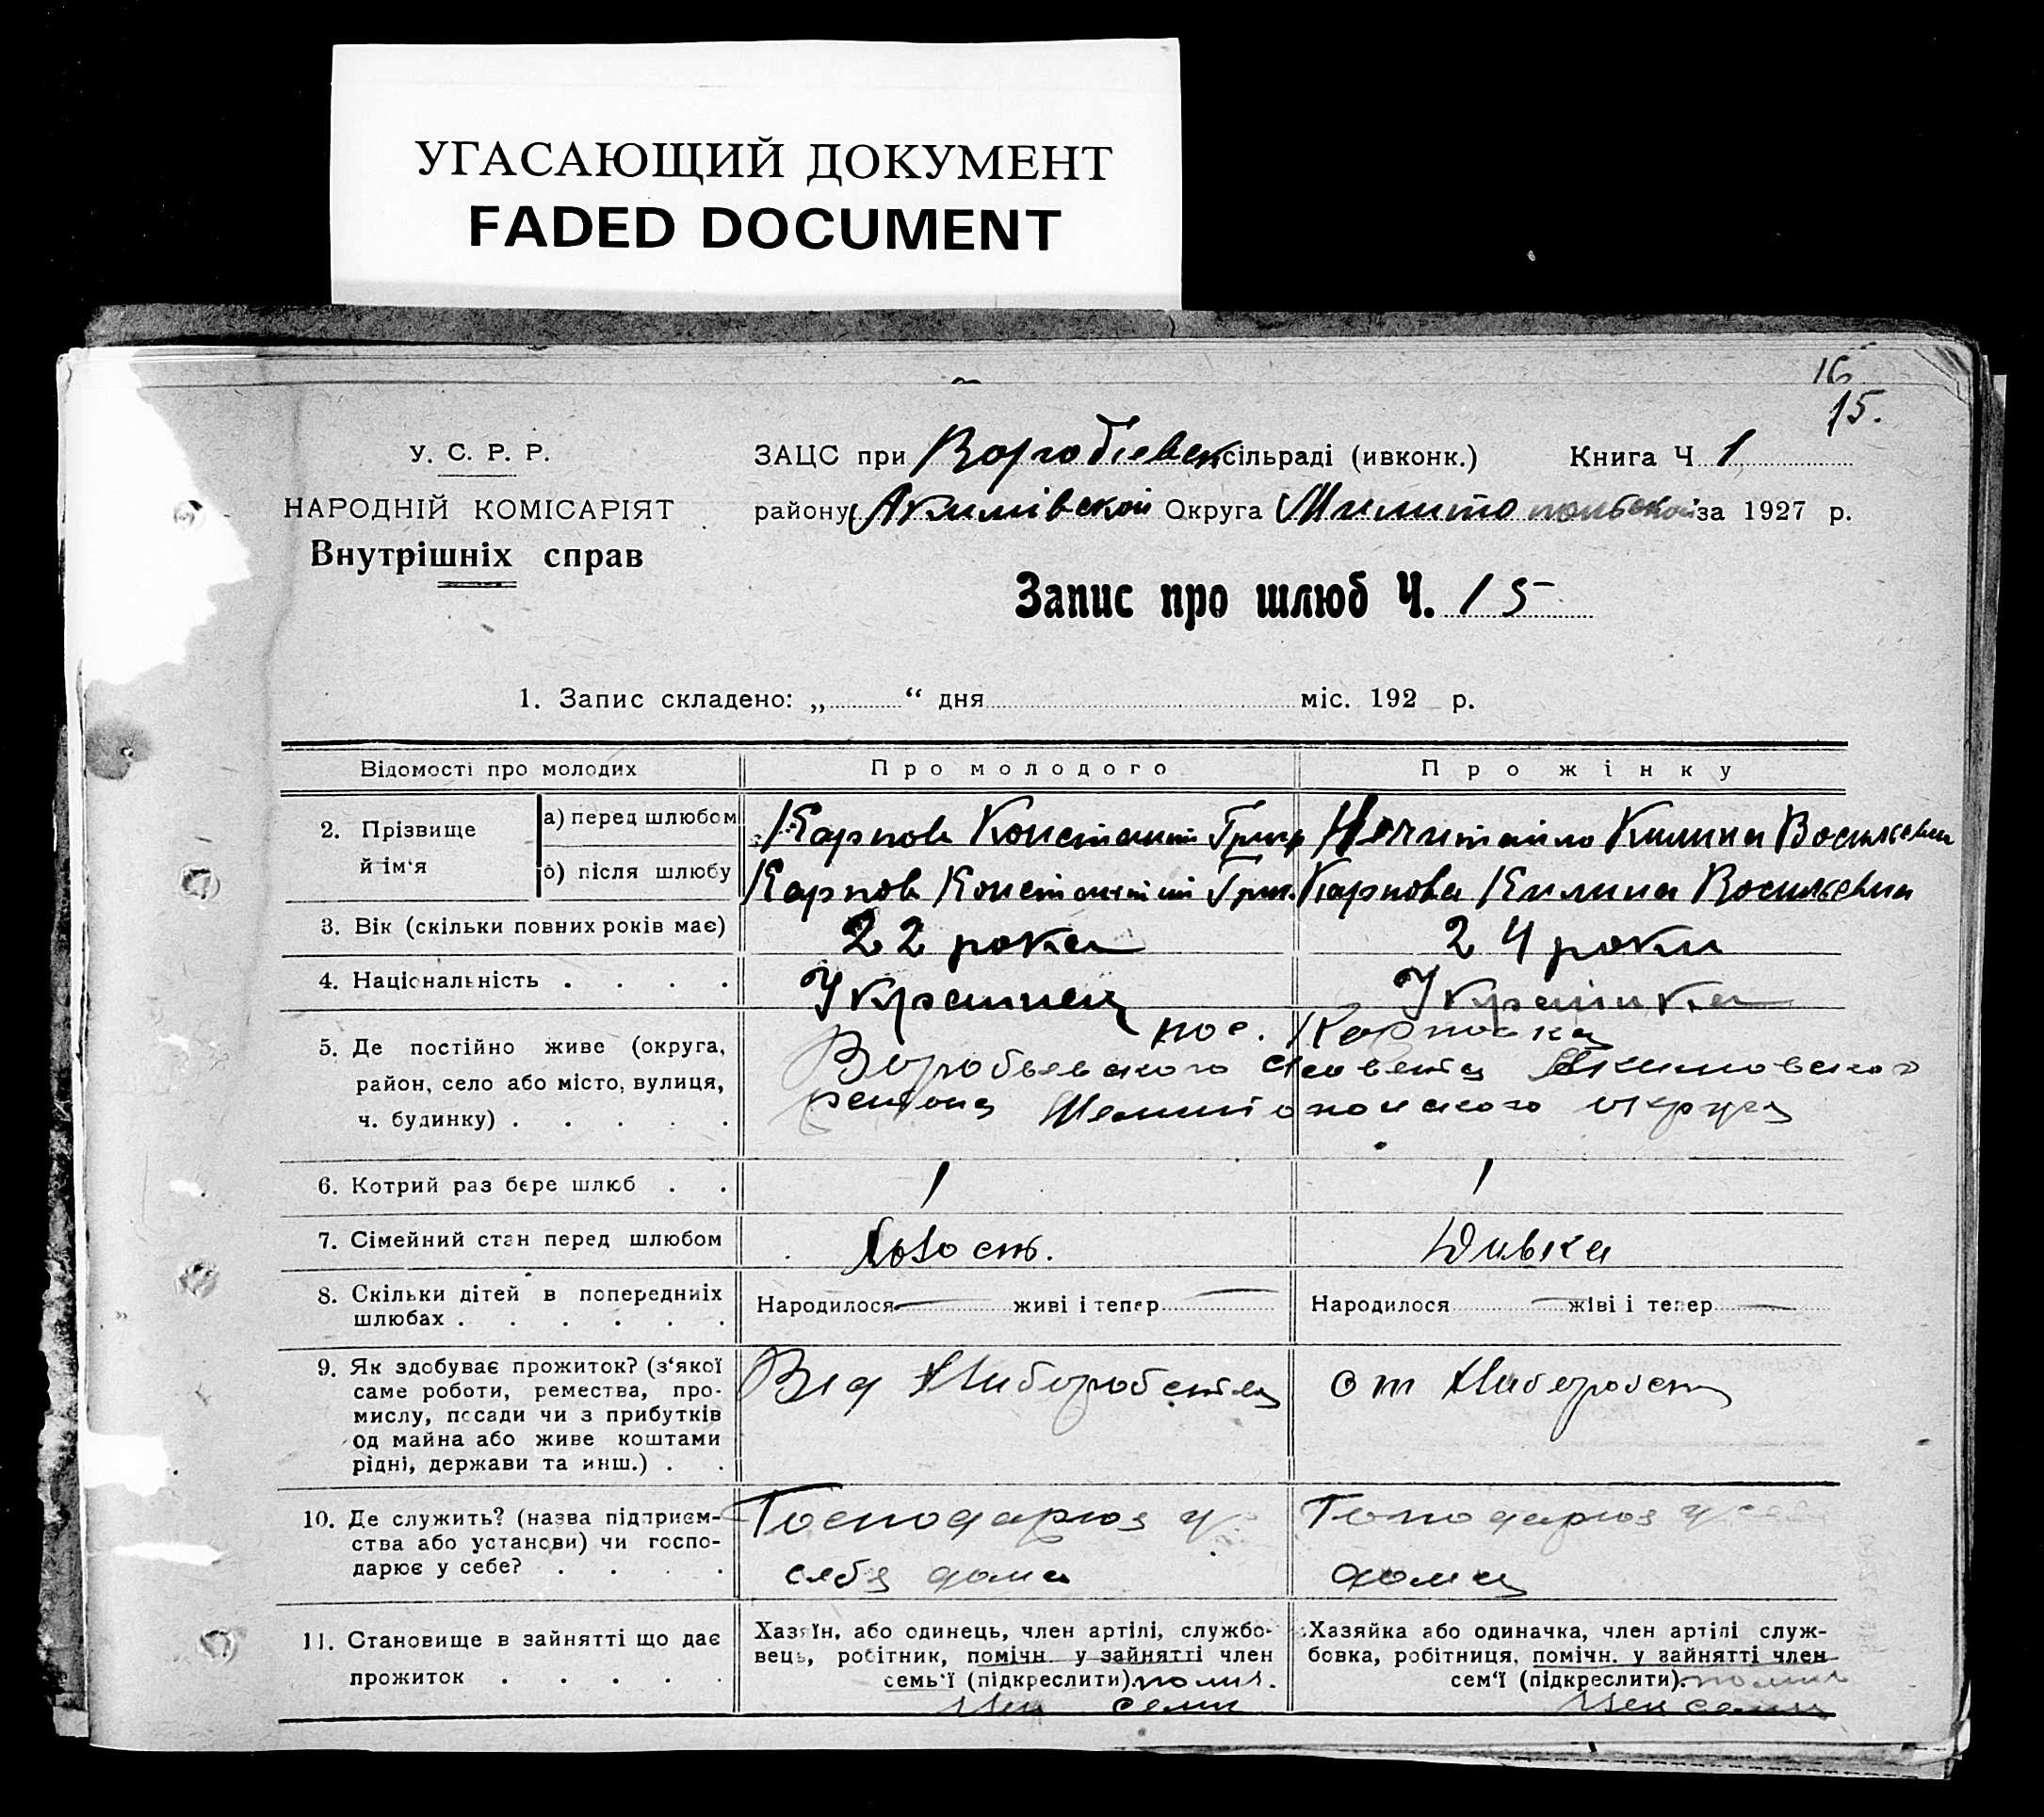 УГАСАЮЩИЙ ДОКУМЕНТ
FADED DOCUMENT
16
15.
У. С. Р. Р.
НАРОДНІЙ КОМІСАРІЯТ
Внутрішніх справ
ЗАЦС при Воробіевск сільраді (ивконк.) Книга Ч 1
району Акимівской Округа Милитопольской за 1927 р.
Запис про шлюб Ч. 15
1. Запис складено: „ “ дня міс. 192 р.
Відомості про молодих Про молодого Про жінку
2. Прізвище й ім‘я
а) перед шлюбом Карпов Константин Григ Нечитайло Килина Васильевна
б) після шлюбу Карпов Константин Григ. Карпова Килина Васильевна
3. Вік (скільки повних років має) 22 рока 24 роки
4. Національність . . . . Украинец Украінка
5. Де постійно живе (округа,
район, село або місто, вулиця,
ч. будинку) . . . . .
пос. Карповка
Воробьевского сельсовета Акимовского
района Мелитопольского округа
6. Котрий раз бере шлюб . . 1 1
7. Сімейний стан перед шлюбом Холост. Дивка
8. Скільки дітей в попередніх
шлюбах . . . . . .
Народилося — живі і тепер — Народилося — живі і тепер —
9. Як здобуває прожиток? (з‘якої
саме роботи, ремества, про-
мислу, посади чи з прибутків
од майна або живе коштами
рідні, держави та инш.) . .
Від Хлиборобства от Хлиборобст
10. Де служить? (назва підприєм-
ства або установи) чи госпо-
дарює у себе? . . . .
Господарюэ у
себя дома
Господарюэ у себя
дома
11. Становище в зайнятті що дає
прожиток . . . . .
Хазяїн, або одинець, член артілі, службо-
вець, робітник, помічн. у зайнятті член
семь‘ї (підкреслити). помич.
член семи
Хазяйка або одиначка, член артілі служ-
бовка, робітниця, помічн. у зайнятті член
сем‘ї (підкреслити). помич
член семи